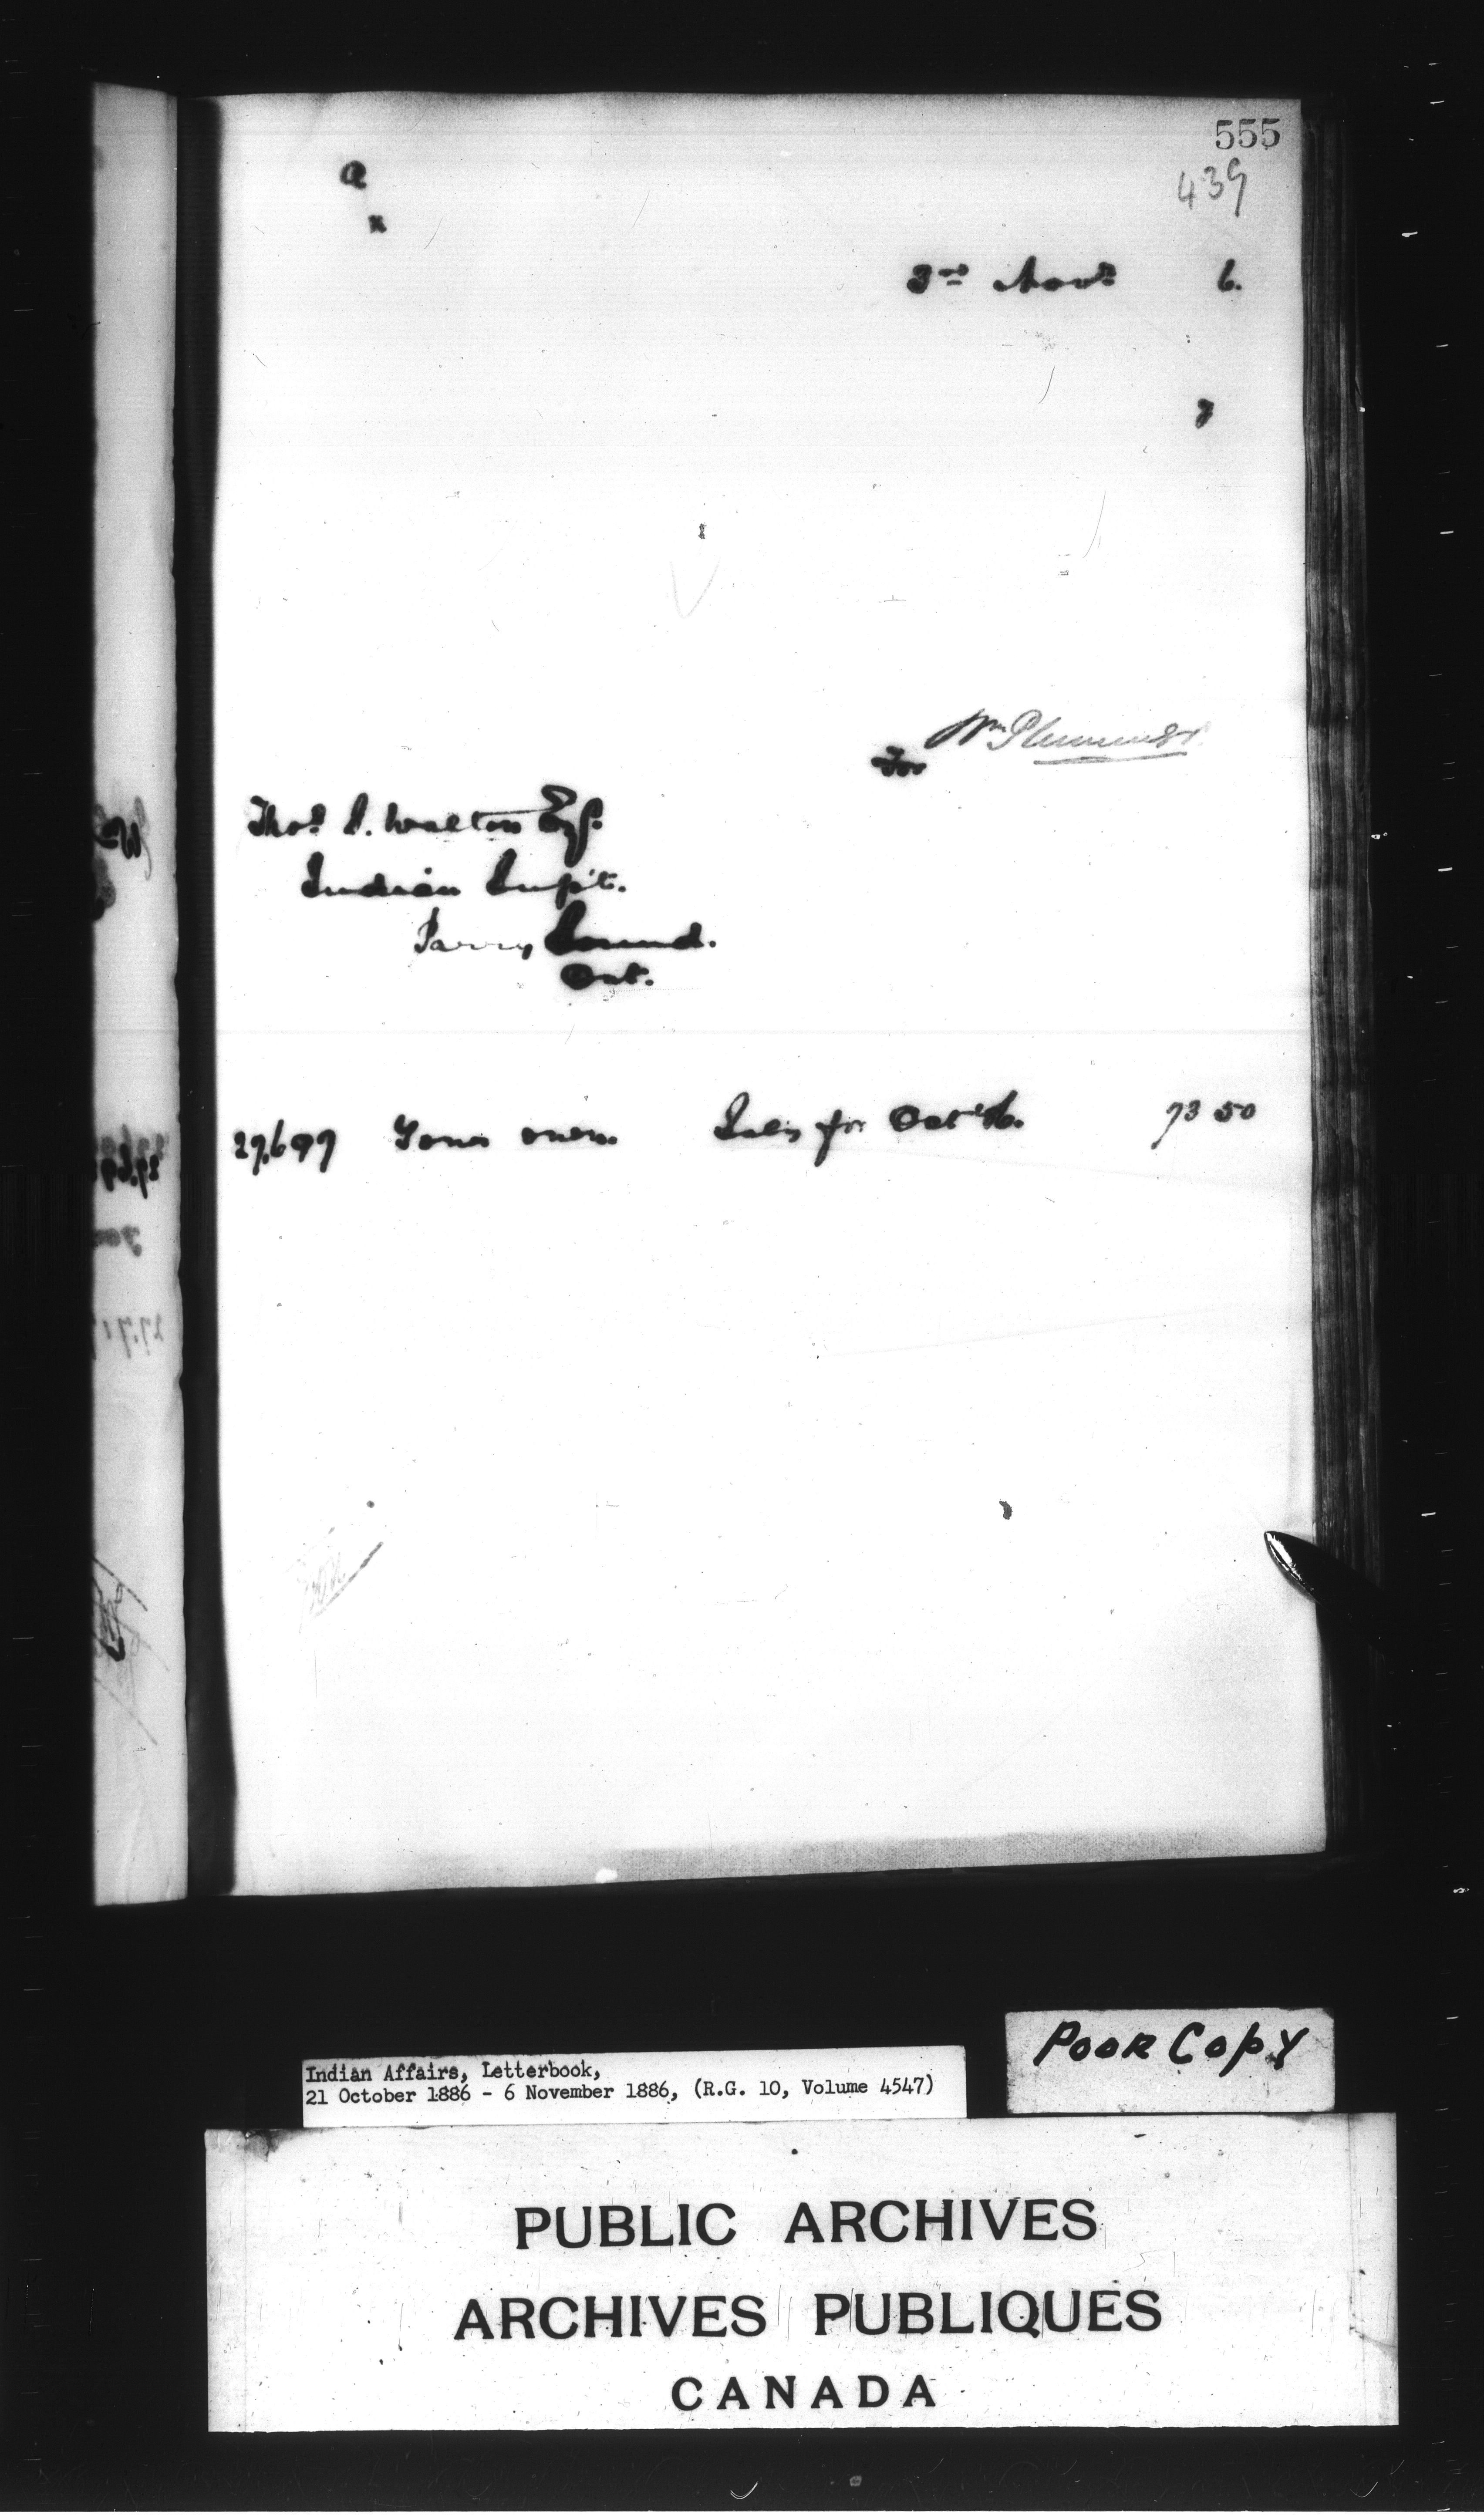 555
439
a
x
3rd Novr 6.
7
Wm Plummer
For
Thos. S. Walton Esq.
Indian Supt.
Parry Sound.
Ont.
27,697 Your own Saly for Oct '86. 73 50
Poor Copy
Indian Affairs, Letterbook,
21 October 1886 - 6 November 1886, (R.G. 10, Volume 4547)
PUBLIC ARCHIVES
ARCHIVES PUBLIQUES
CANADA